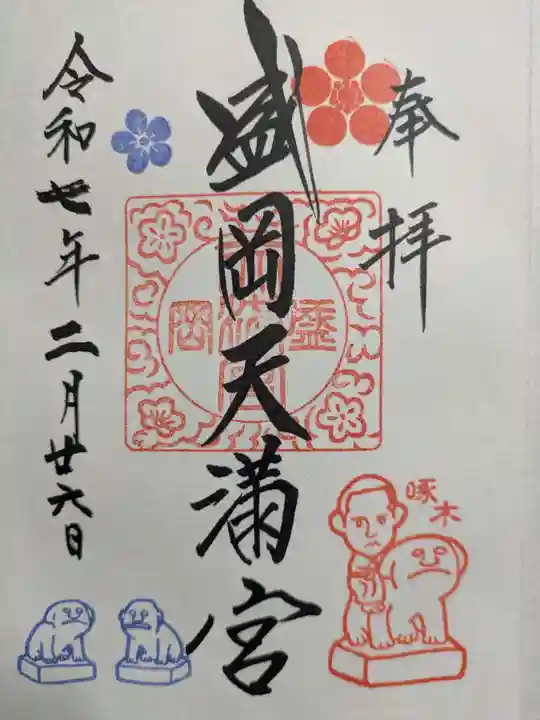 奉拝
盛岡天満宮
盛岡
啄木
令和七年二月廿六日